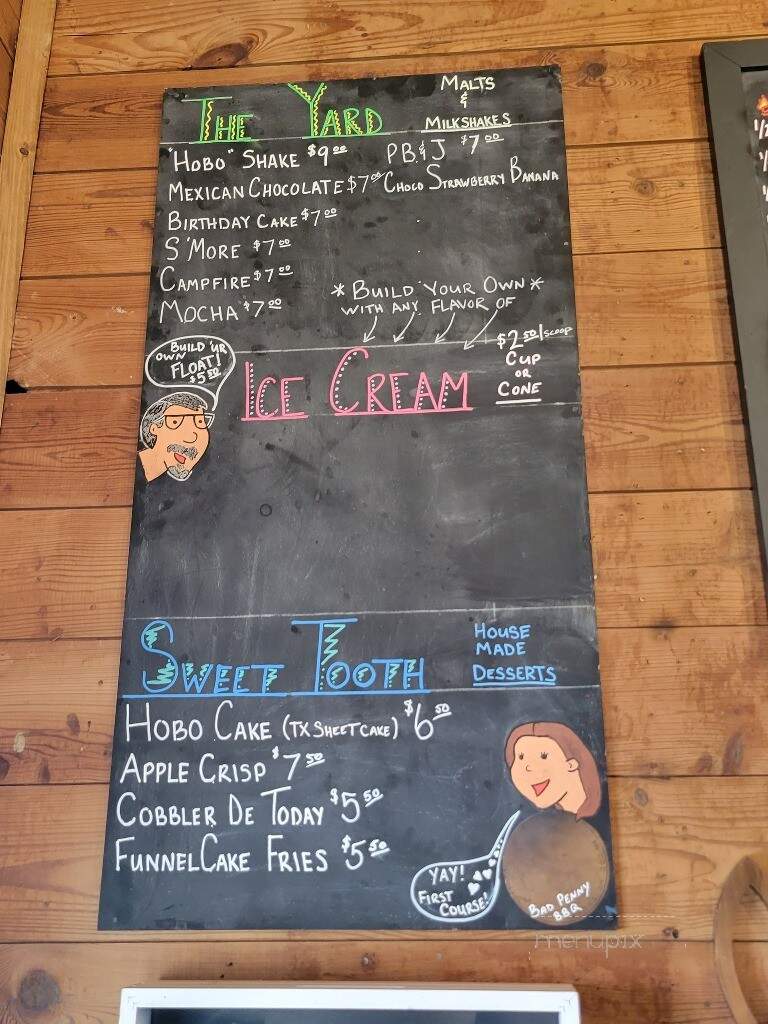 THE YARD
MALTS
&
MILKSHAKES
"HOBO" SHAKE $9.00
P.B.&J $7.00
MEXICAN CHOCOLATE $7.00
CHOCO STRAWBERRY BANANA
BIRTHDAY CAKE $7.00
S'MORE $7.00
CAMPFIRE $7.00
MOCHA $7.00
* BUILD YOUR OWN *
WITH ANY FLAVOR OF
BUILD 'UR
OWN
FLOAT!
$5.50
ICE CREAM
$2.50/SCOOP
CUP
OR
CONE
SWEET TOOTH
HOUSE
MADE
DESSERTS
HOBO CAKE (TX SHEET CAKE) $6.50
APPLE CRISP $7.50
COBBLER DE TODAY $5.50
FUNNEL CAKE FRIES $5.50
YAY!
FIRST
COURSE!
BAD PENNY
BBQ
menupix